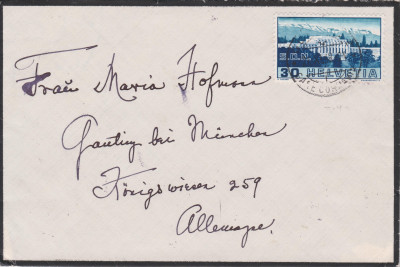 S.D.N.
30 HELVETIA
Frau Maria Hofmann
Gauting bei München
Königswieser 259
Allemagne.